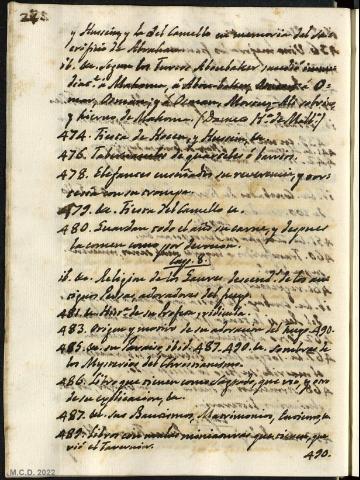 y Hussein, y la del Camello en memoria del sa-
crificio de Abraham.
ib. &a. Segun los Turcos Aboubeker, sucedió inme-
diat.e a Mahoma, á Abou-beker, Omar, á O-
mar, Osman; y á Osman, Mortuz-Ali sobrino,
y hierno de Mahoma.
474. Fiesta de Hocen, y Hussein, &a.
476. de quarteles ó barrios.
478. Elefantes enseñados su reverencia, y
con su trompa.
479. &a. Fiesta del Camello &a.
480. Guardan todo el año su carne, y despues
la comen como por devocion.
Cap. 8.
ib. &a. Religion de los Gaures descend.tes de los an-
tiguos Persas adoradores del fuego.
481. &a. Hist.a de su profeta, ridicula.
483. Origen y motivo de su adoracion del fuego. 490.
485. &a. su Paraiso ibid. 487. 490. &a. Sombras de
los Mysterios del Christianismo.
486. Libro que tienen como sagrado, que vió, y otro
de su explicacion, &a.
487. &a. sus Bautismos, Matrimonios, Entierros, &a.
489. Libros con que tienen, que
vió el Tavernier.
490.
M.C.D. 2022